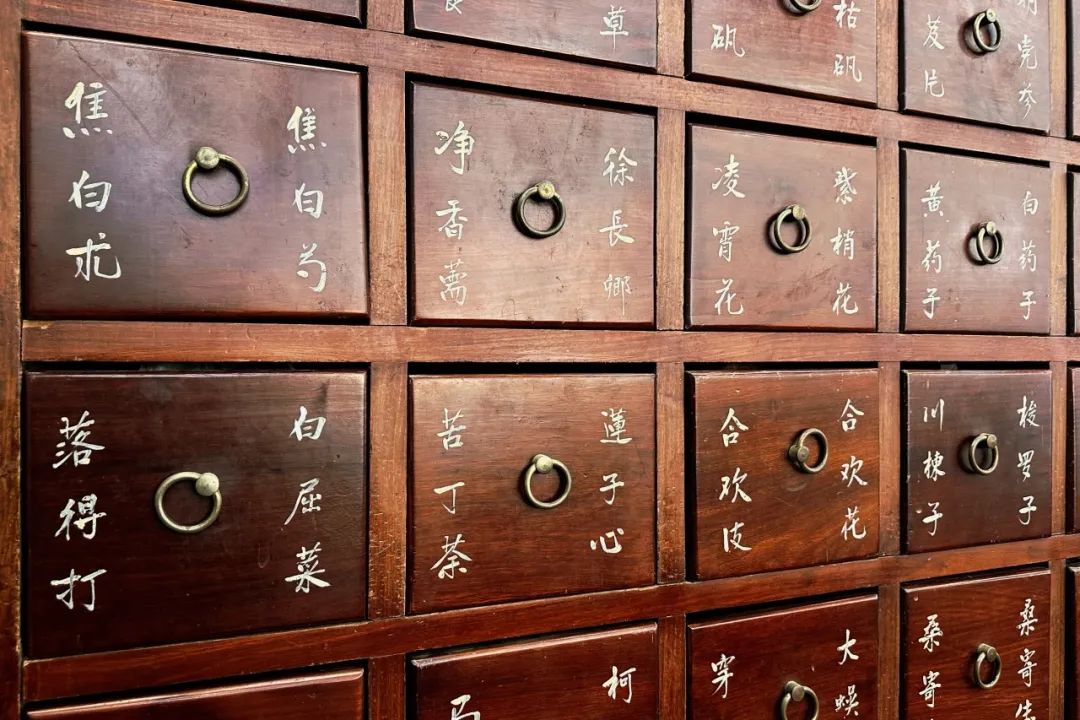 草
矾
枯矾
芨片
明党参
焦白朮
焦白芍
净香薷
徐長卿
凌霄花
紫梢花
黄药子
白药子
落得打
白屈菜
苦丁茶
蓮子心
合欢皮
合欢花
川楝子
梭罗子
柯
穿
大蜈
桑寄
桑寄